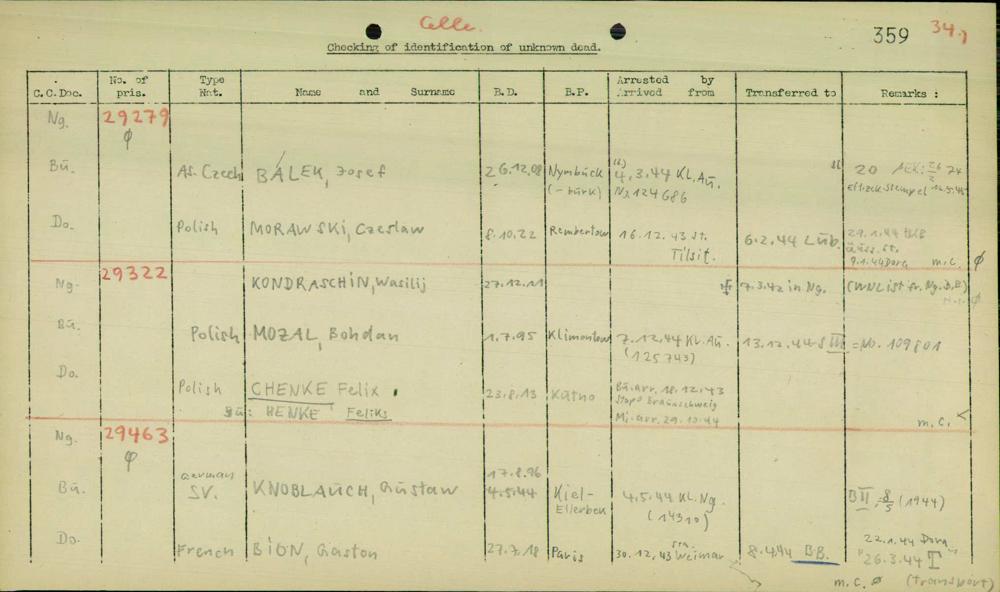 Celle.
359
34.)
Checking of identification of unknown dead.
C.C.Doc. No. of pris. Type Nat. Name and Surname B.D. B.P. Arrested by Arrived from Transferred to Remarks :
Ng. 29279 ø
Bu. As. Czech BÁLEK, Josef 26.12.08 Nymbück (-bürk) 4.3.44 KL.Au. No 124686 20
Do. Polish MORAWSKI, Czeslaw 8.10.22 Rembertow 16.12.43 St. Tilsit. 6.2.44 Lub. 29.1.44
9.1.44 Dora m.C. ø
Ng. 29322 KONDRASCHIN, Wasilij 27.12.11 7.3.42 in Ng.
Bu. Polish MOZAL, Bohdan 1.7.95 Klimontow 7.12.44 KL.Au. (125743) 13.12.44 S III = No. 109801
Do. Polish CHENKE Felix 23.8.13 Katno Bu.arr. 18.12.43
Bu: HENKE Feliks Stapo Braunschweig
Mi.arr. 29.10.44 m.C.
Ng. 29463 ø
Bu. German SV. KNOBLAUCH, Gustaw 17.8.96 4.5.44 Kiel-Ellerbek 4.5.44 KL.Ng. (14310) BII, 8/5 (1944)
Do. French BION, Gaston 27.7.18 Paris 30.12.43 Weimar 8.4.44 B.B. 22.1.44 Dora
26.3.44 T
m.C. ø (transport)